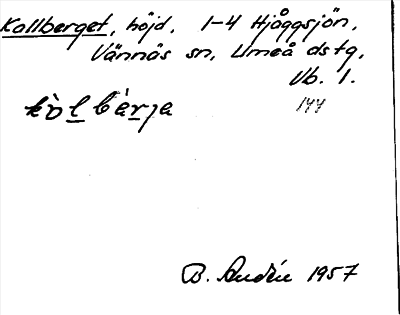 Kallberget, höjd, 1-4 Hjåggsjön,
Vännäs sn, Umeå dstg,
Vb. 1.
kòlbärja
144
B. Andrén 1957